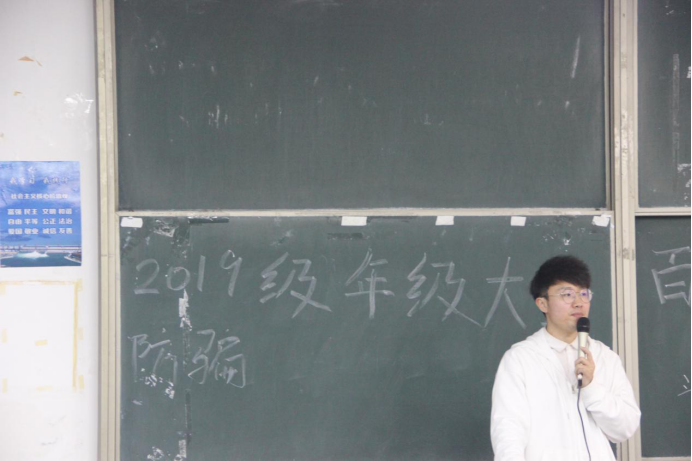 社会主义核心价值观
富强 民主 文明 和谐
自由 平等 公正 法治
爱国 敬业 诚信 友善
2019级年级大
防骗